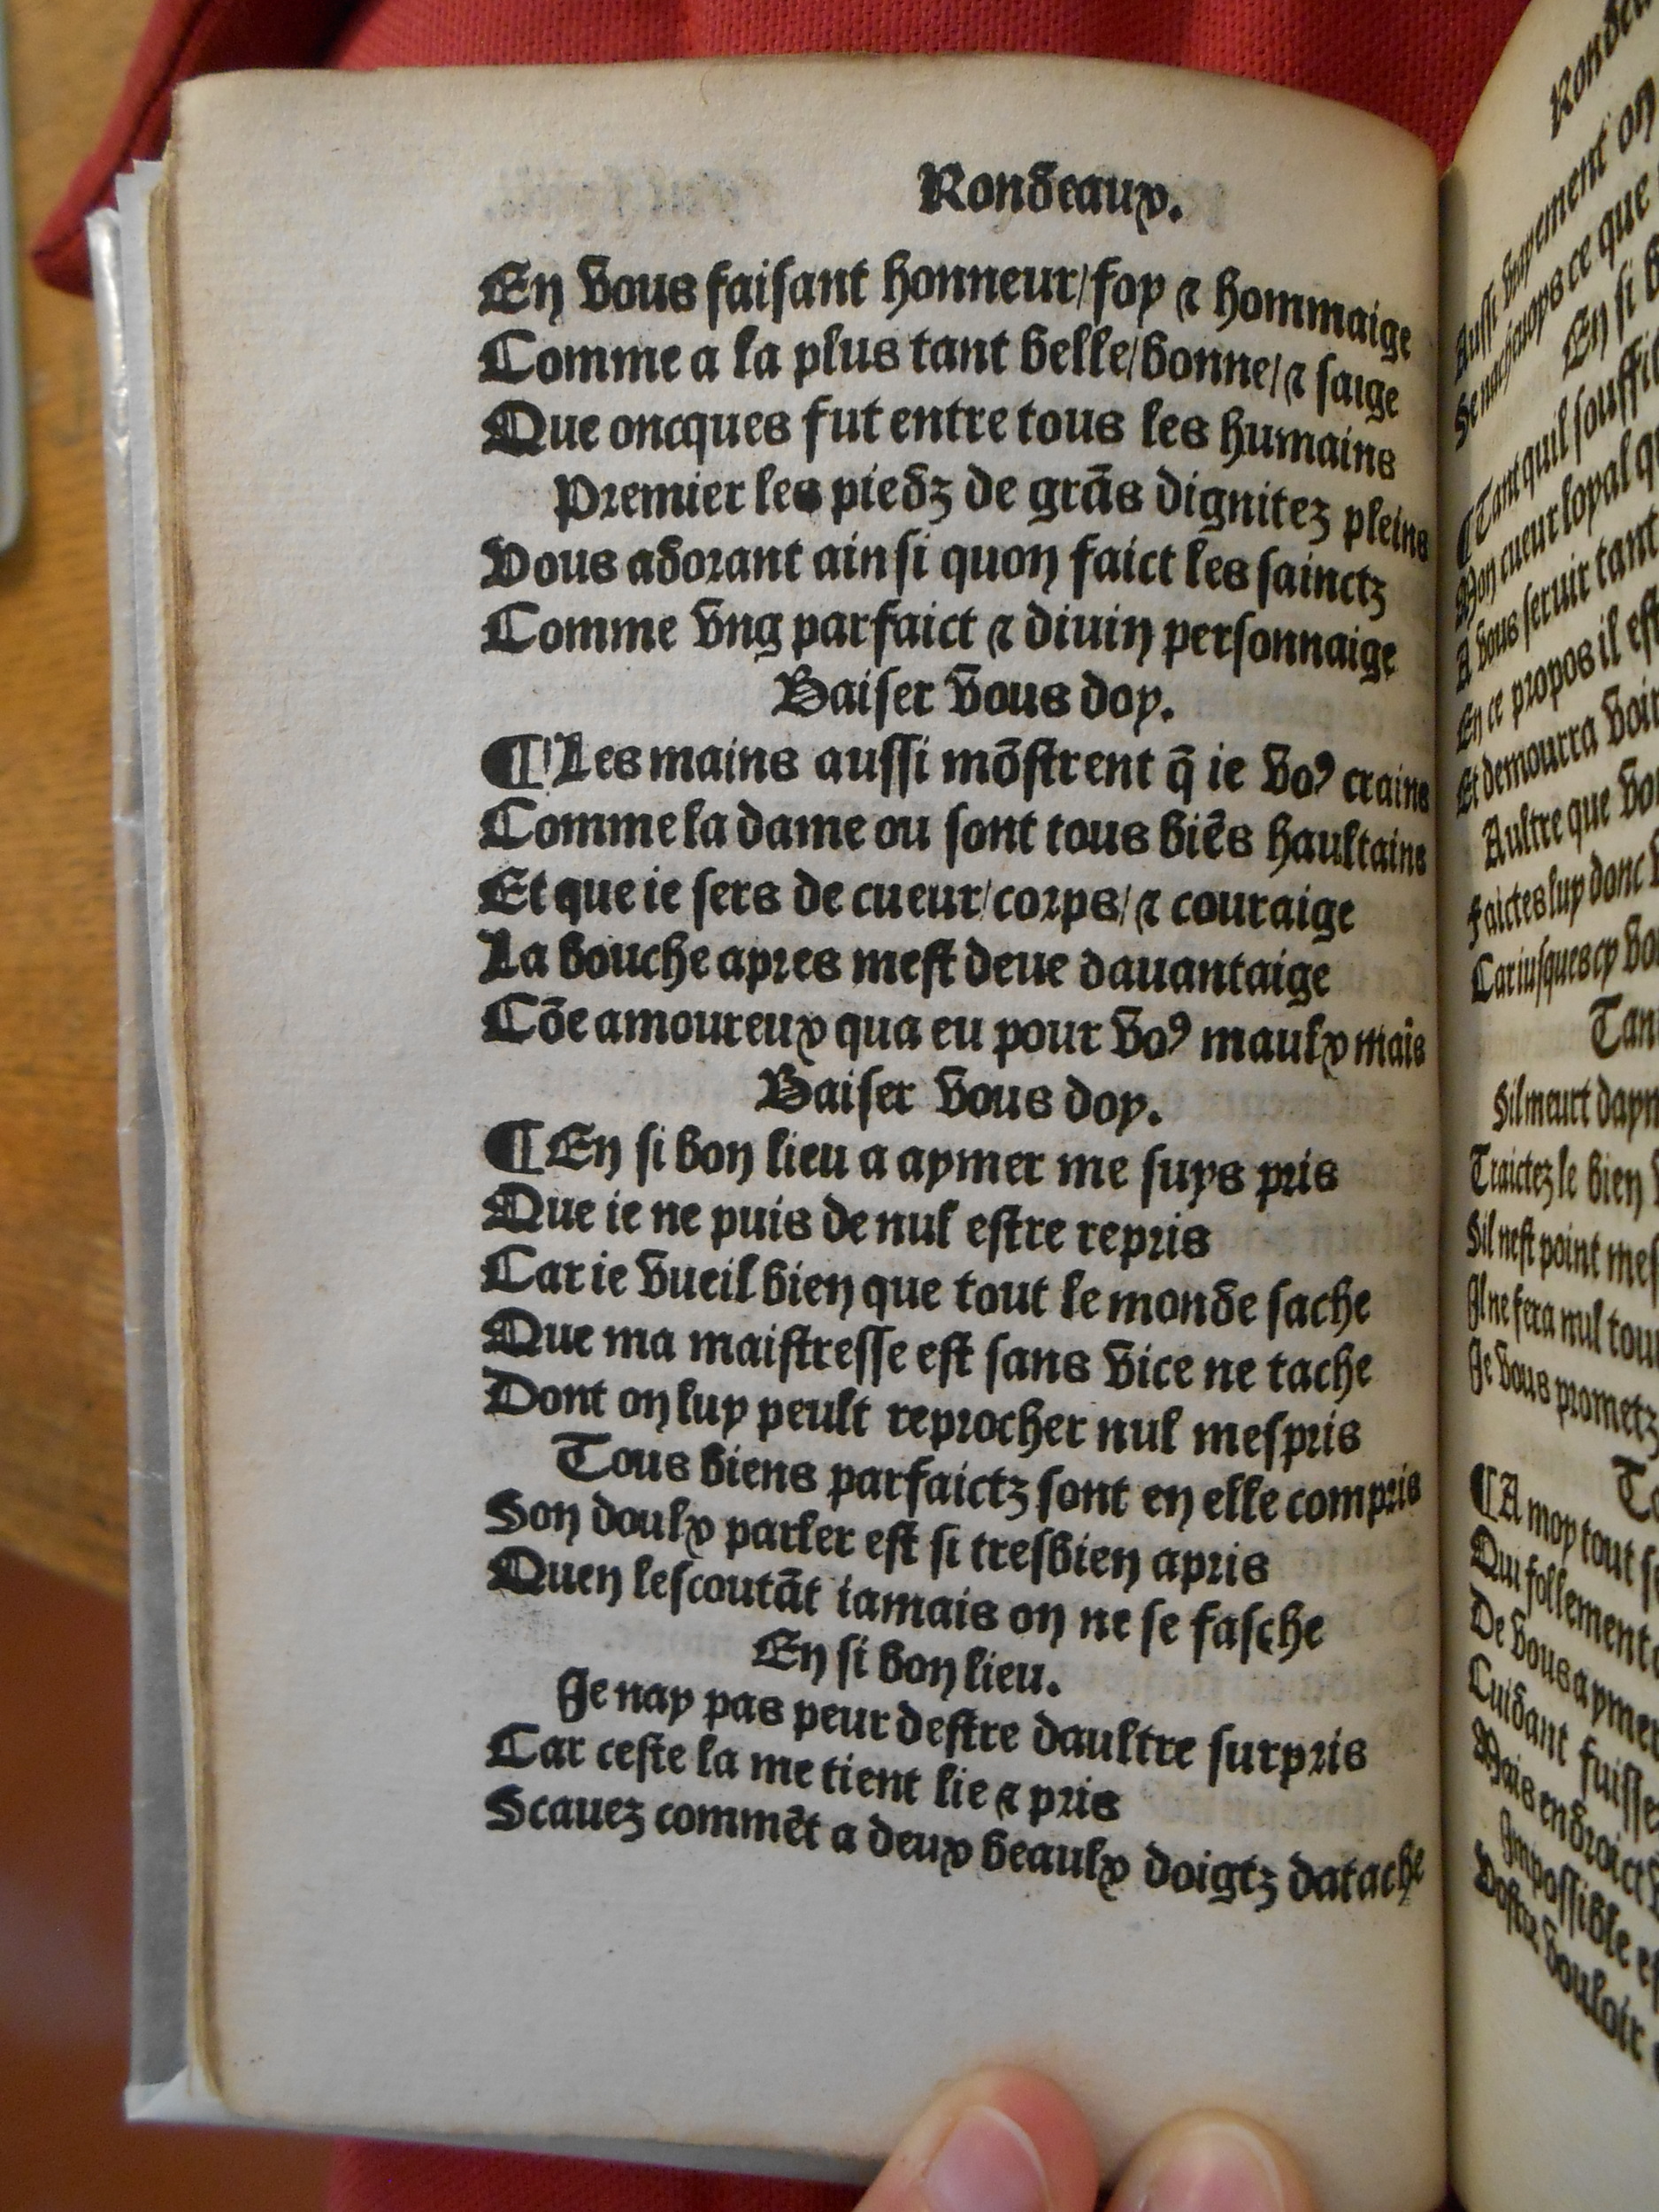 Rondeaux.
En vous faisant honneur/foy ⁊ hommaige
Comme a la plus tant belle/bonne/⁊ saige
Que oncques fut entre tous les humains
Premier les piedz de grãs dignitez pleins
Vous adorant ainsi quon faict les sainctz
Comme vng parfaict ⁊ diuin personnaige
Baiser vous doy.
¶Les mains aussi mõstrent q̃ ie voꝰ crains
Comme la dame ou sont tous biẽs haultains
Et que ie sers de cueur/corps/⁊ couraige
La bouche apres mest deue dauantaige
Cõe amoureux qua eu pour voꝰ maulx mais
Baiser vous doy.
¶En si bon lieu a aymer me suys pris
Que ie ne puis de nul estre repris
Car ie vueil bien que tout le monde sache
Que ma maistresse est sans vice ne tache
Dont on luy peult reprocher nul mespris
Tous biens parfaictz sont en elle compris
Son doulx parler est si tresbien apris
Quen lescoutãt iamais on ne se fasche
En si bon lieu.
Je nay pas peur destre daultre surpris
Car ceste la me tient lie ⁊ pris
Scauez commẽt a deux beaulx doigtz datache
Aussi
En si
Tant quil
Mon cueur loyal
A vous seruir tant
En ce propos il
Et demourra
Aultre que
Faictes luy donc
Car iusques cy
Sil meurt
Traictez le bien
Sil nest point
Il ne fera nul
Je vous prometz
¶A moy tout
Qui follement
De vous aymer
Cuidant
Mais endroict
Impossible
Vostre vouloir